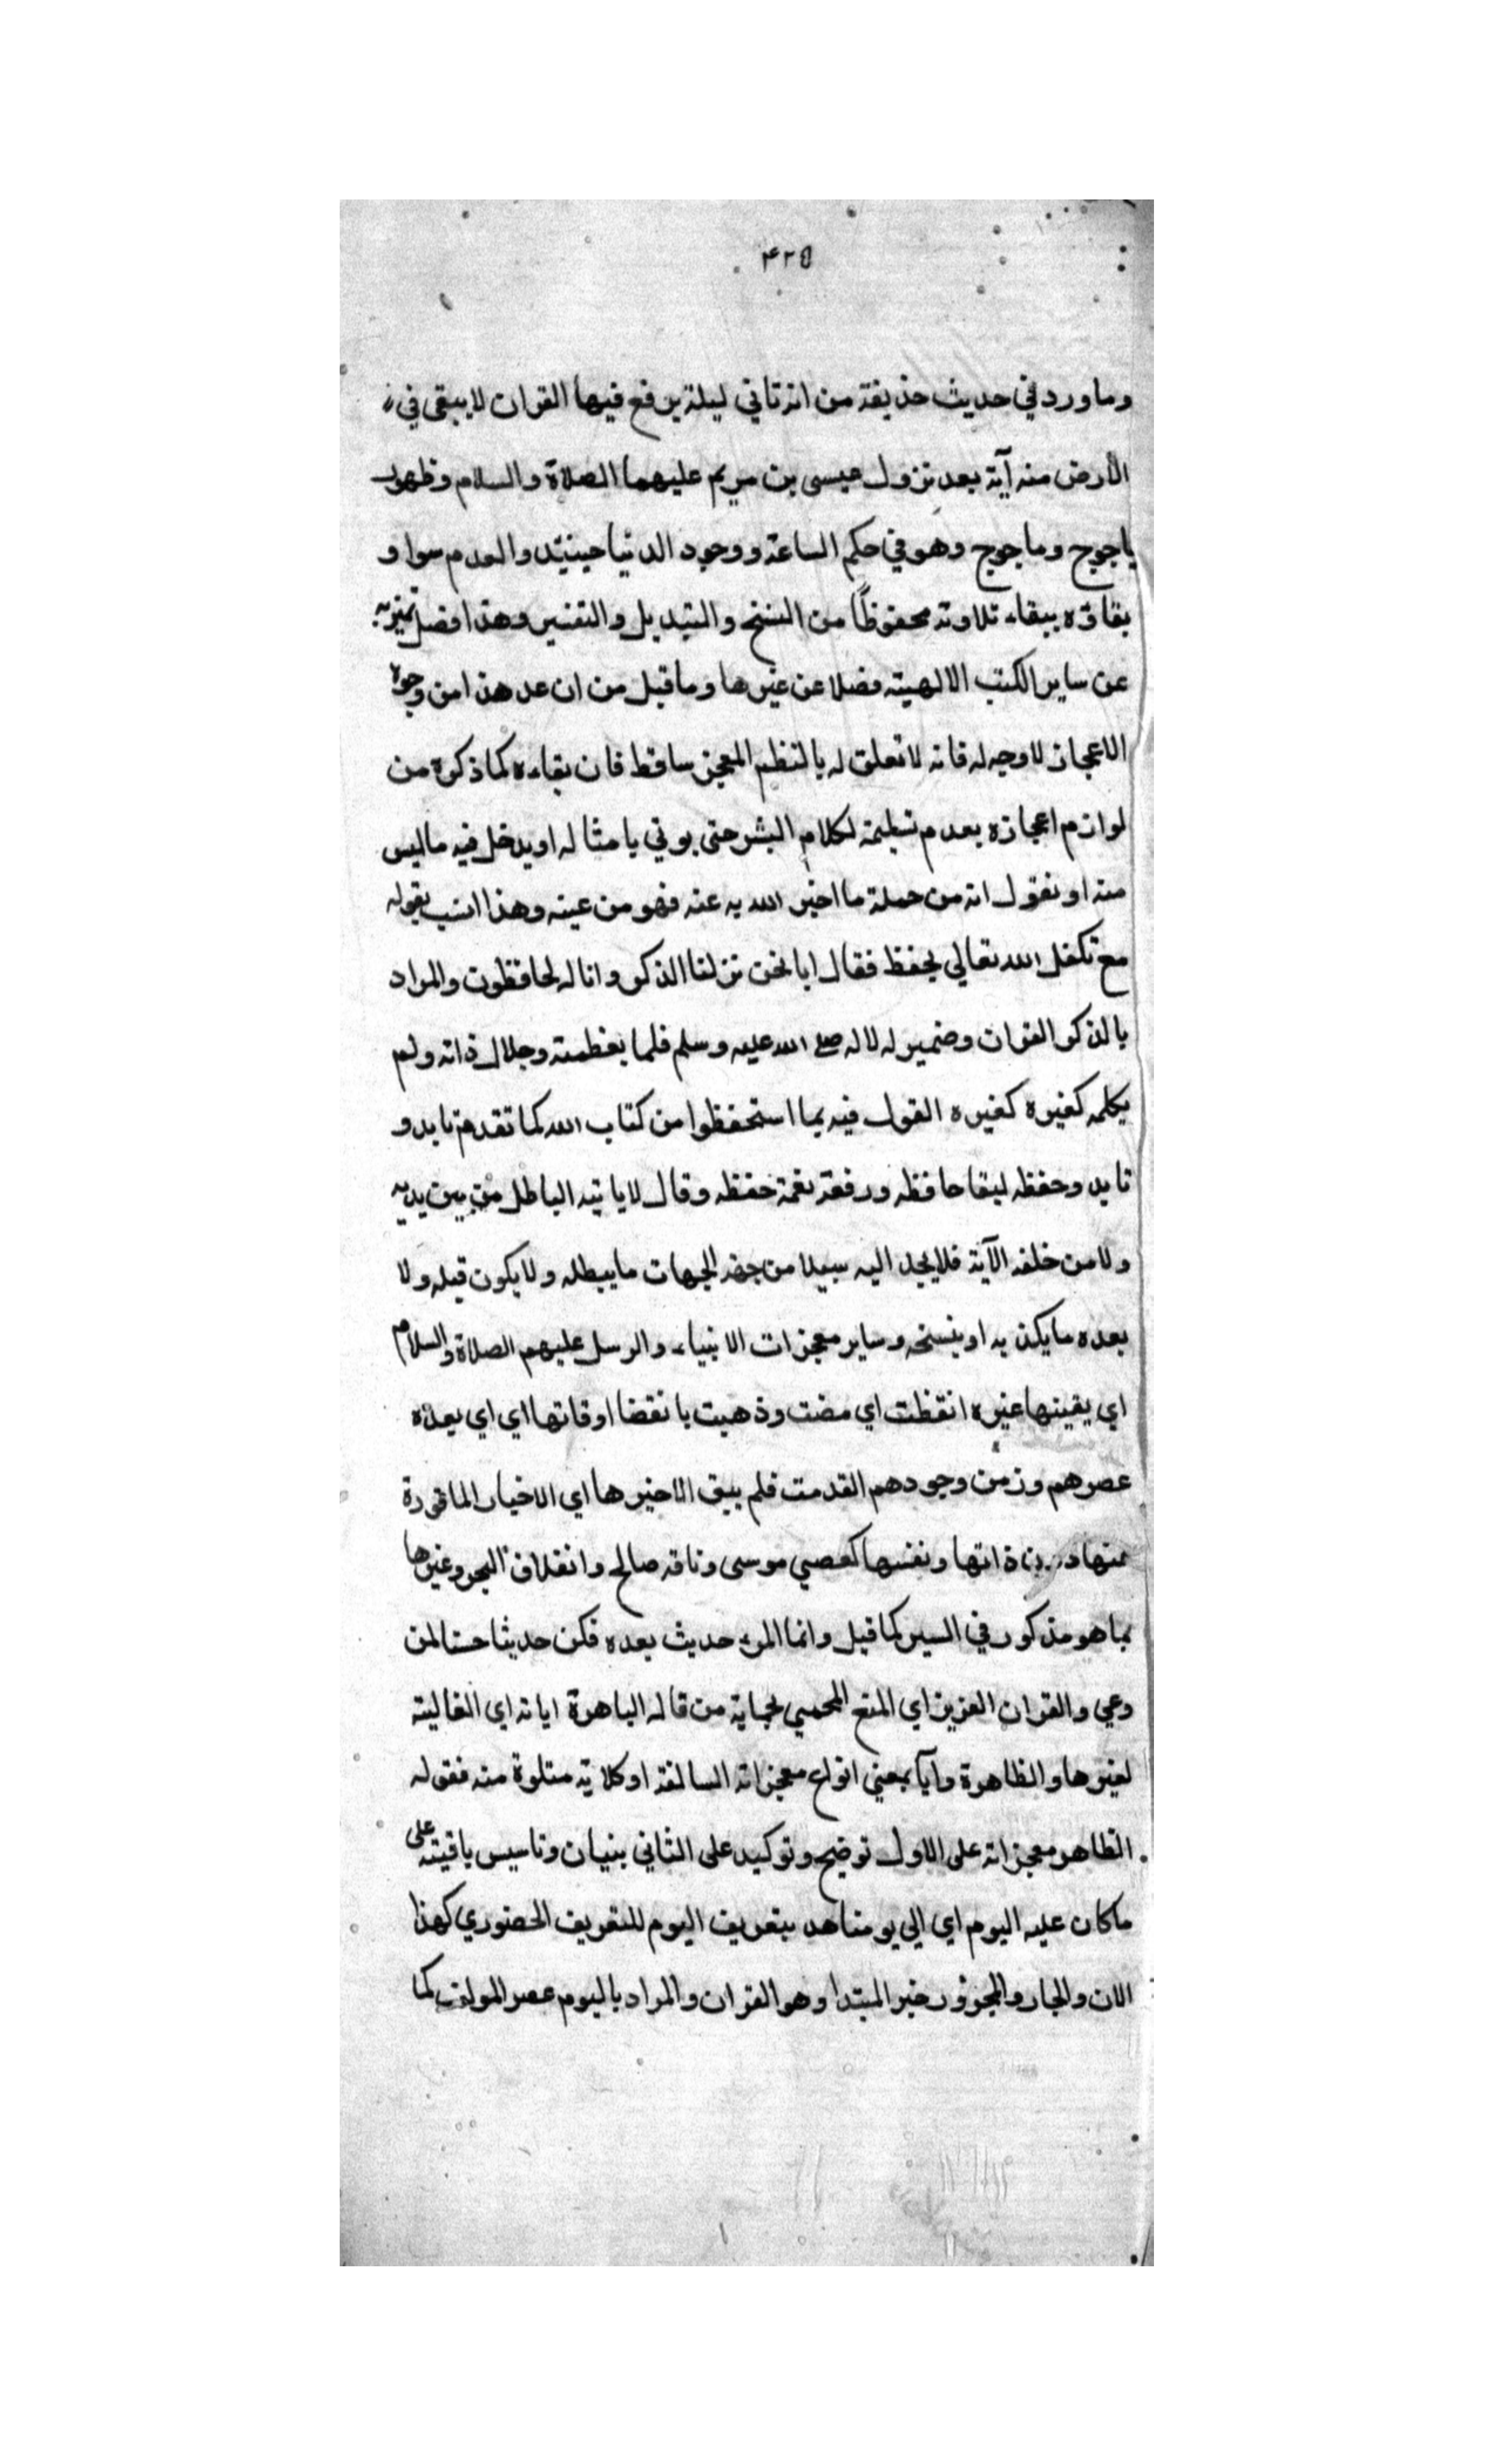 ٤٢٥
وما ورد في حديث حذيفة من انه تاتي ليلة يرفع فيها القران لا يبقى في
الأرض منه آية بعد نزول عيسى بن مريم عليهما الصلاة والسلام وظهور
ياجوج وماجوج وهو في حكم الساعة ووجود الدنيا حينيئد والعدم سوا و
بقاؤه ببقاء تلاوته محفوظًا من النسخ والتبديل والتغيير وهذا افضل تميز به
عن ساير الكتب الالهية فضلا عن غيرها وما قيل من ان عد هذا من وجوه
الاعجاز لا وجه له فانه لا تعلق له بالنظم المعجز ساقط فان بقاءه كما ذكره من
لوازم اعجازه بعدم لكلام البشر حتى يوتي بامثاله او يدخل فيه ماليس
منه او نقول انه من جملة ما اخبر الله به عنه فهو من عينه وهذا انسب بقوله
مع تكفل الله تعالي بحفظ فقال انا نحن نزلنا الذكر وانا له لحافظون والمراد
بالذكر القران وضمير له لا له صلى الله عليه وسلم فلما بعظمته وجلال ذاته ولم
يكلمه كغيره كغيره القول فيه بما استحفظوا من كتاب الله كما تقدم تابد و
تابد وحفظه لبقا حافظه ورفعة نغمة حفظه وقال لا ياتيه الباطل من بين يديه
ولا من خلفه الآية فلا يجد اليه سبيلا من جهة الجهات ما يبطله ولا يكون قبله ولا
بعده ما يكذ به او ينسخه وساير معجزات الانبياء والرسل عليهم الصلاة والسلام
اي بقيتها غيره انقظت اي مضت وذهبت بانقضا اوقاتها اي اي بعدة
عصرهم وزمن وجودهم القدمت فلم يبق الا خبرها اي الاخبار الماثورة
عنها ذاتها ونفسها كعصي موسى وناقة صالح وانفلاق البحر وغيرها
بما هو مذكور في السير كما قيل وانما المرء حديث بعده فكن حديثا حسنا لمن
وعي والقران العزيز اي المنع المحمي بحماية من قاله الباهرة اياته اي الغالبة
لغيرها والظاهرة وآيا بمعني انواع معجزاته السالفة او كلاية متلوة منه فقوله
الظاهر معجزاته على الاول توضيح وتوكيد على الثاني بنيان وتاسيس باقية على
ماكان عليه اليوم اي الي يومنا هد بتعريف اليوم للتعريف الحضوري كهذا
الان والجار والمجرور خبر المبتدا وهو القران والمراد باليوم عصر المولف كما